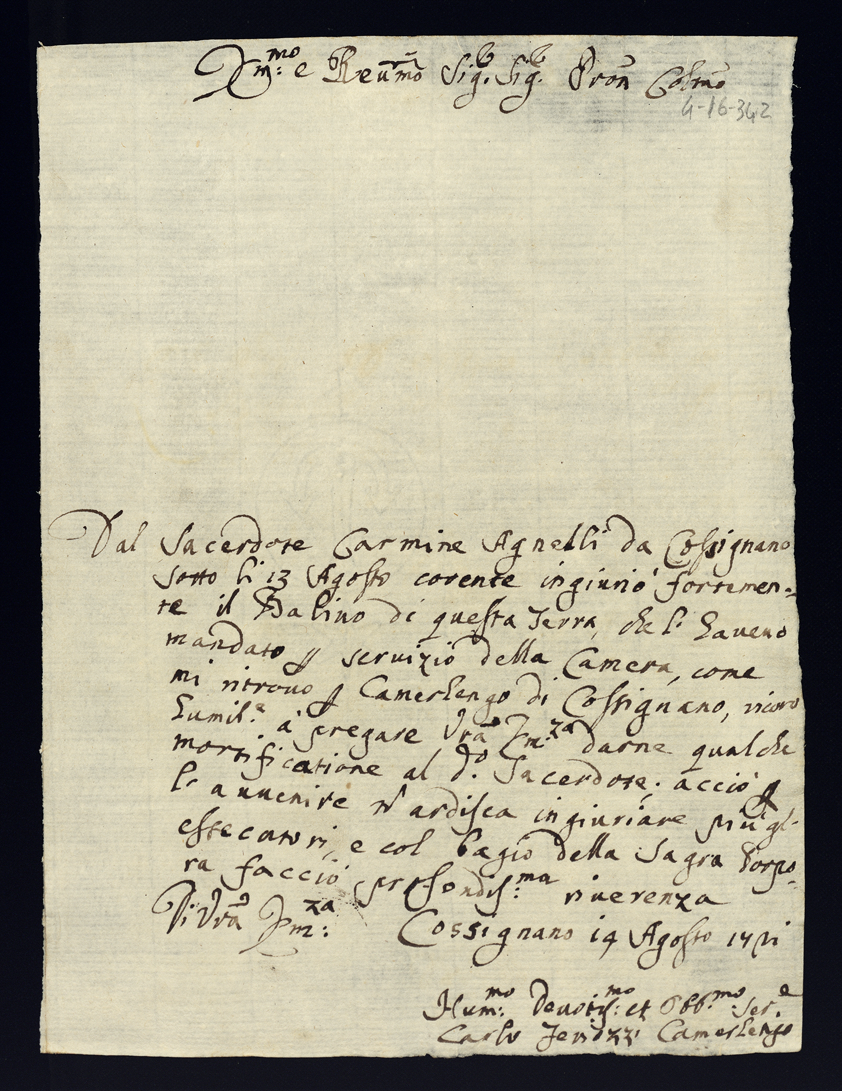 Em:mo e Reu͠mo Sig:r Sig:r Pro͠n Col͠mo
4-16-342
Dal Sacerdote Carmine Agnelli da Cossignano
sotto li 13 Agosto corente ingiuriò fortemen-
te il Balivo di questa Terra, che l' haveuo
mandato p servizio della Camera, come
mi ritrouo p Camerlengo di Cossignano, ricoro
humil:e à pregare V͠ra Em:za darne qualche
mortificatione al d:o Sacerdote; acciò p
l' auuenire n̄ ardisca ingiuriare più gl'
essecutori, e col bagio della Sagra Porpo-
ra faccio profondis:ma riuerenza
Di V͠ra Em:za Cossignano 14 Agosto
Hum:mo Deuotis:mo et Obb:mo Ser:e
Carlo Camerlengo